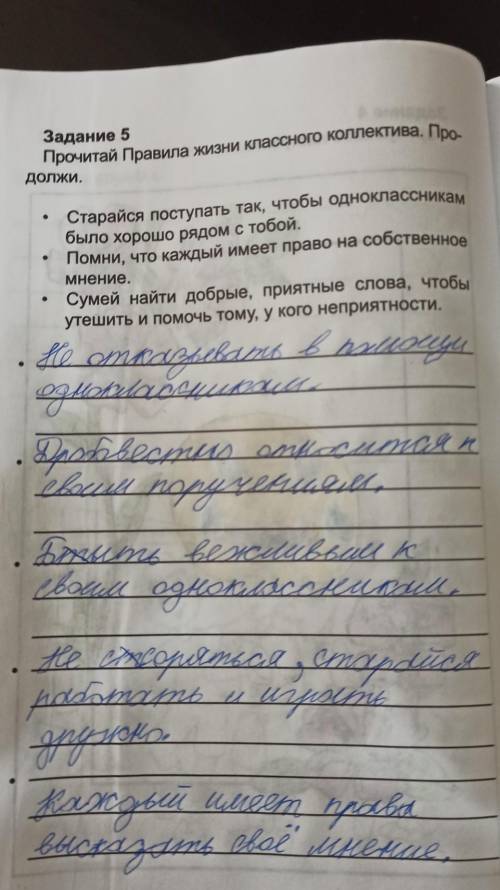 Задание 5
Прочитай Правила жизни классного коллектива. Про-
должи.
• Старайся поступать так, чтобы одноклассникам
было хорошо рядом с тобой.
• Помни, что каждый имеет право на собственное
мнение.
• Сумей найти добрые, приятные слова, чтобы
утешить и помочь тому, у кого неприятности.
• Не отказывать в помощи
одноклассникам.
• Дробвестно относится к
своим поручениям.
• Бтыть вежливым к
своим одноклассникам.
• Не ссоряться, старайся
работать и играть
дружно.
• Каждый имеет права
высказать своё мнение.